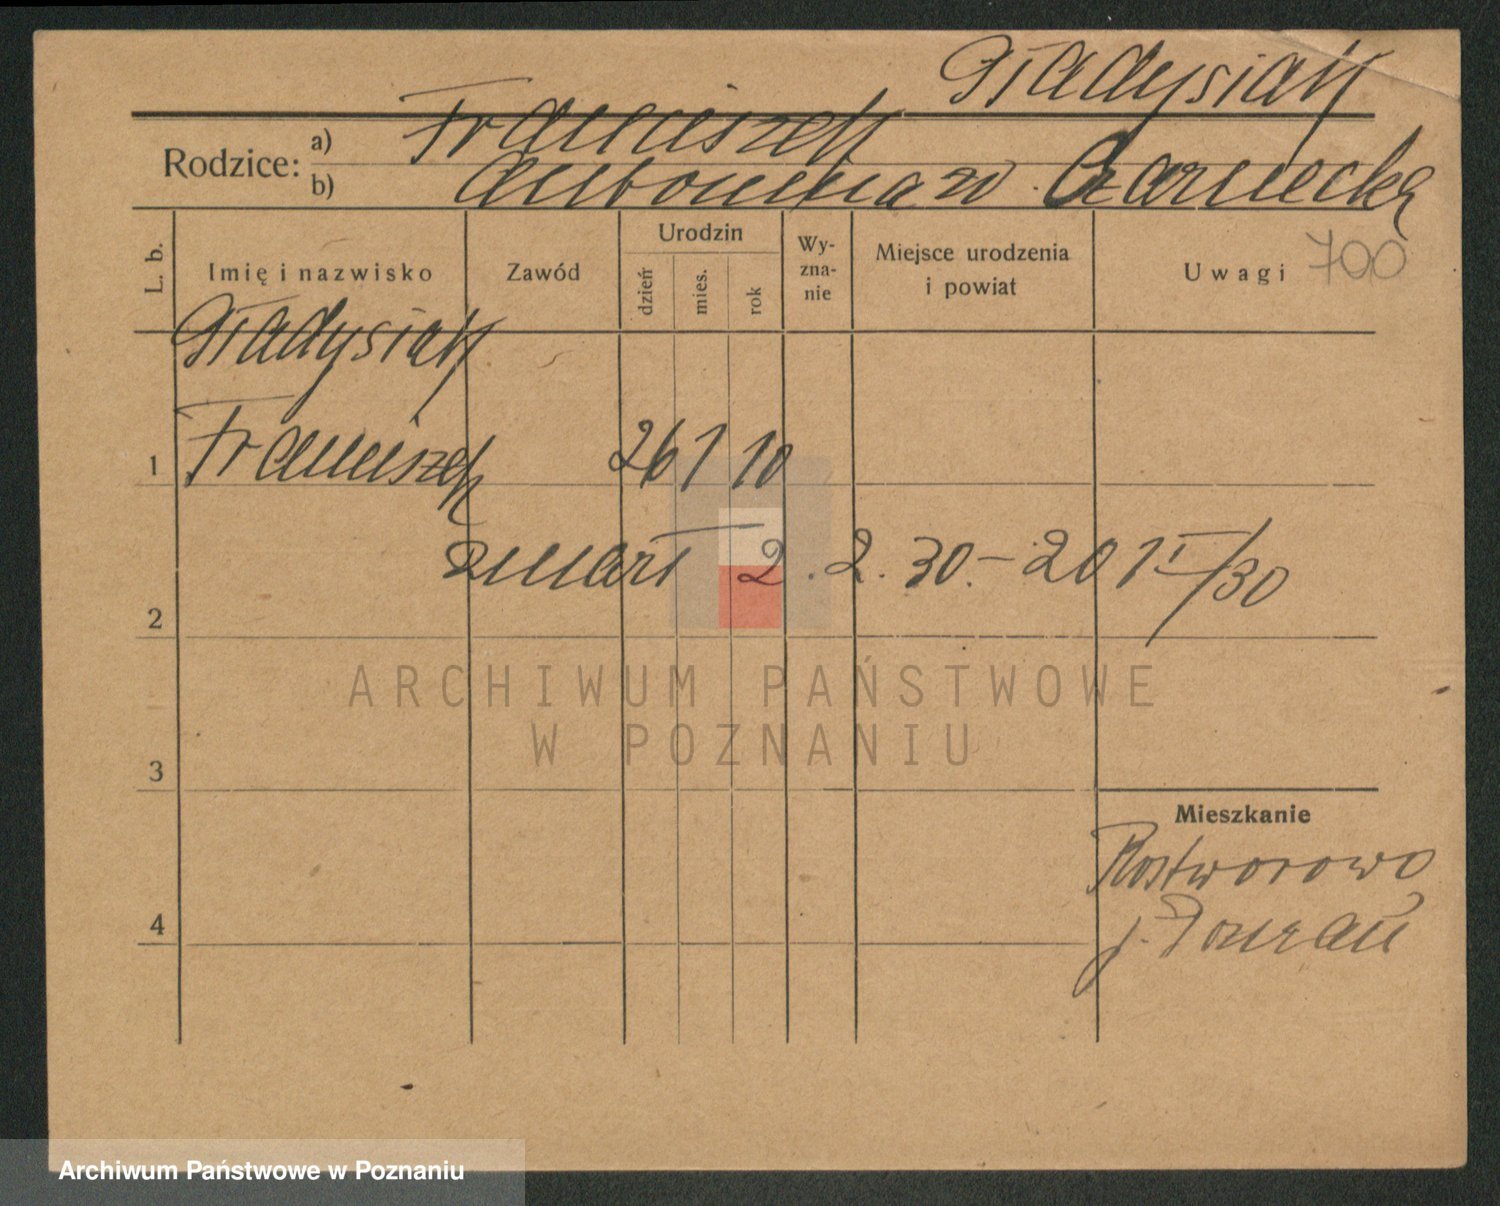 Gładysiak
Rodzice: a) Franciszek
b) Antonina zd. Czarnecka
L. b.
Imię i nazwisko
Zawód
Urodzin
dzień
mies.
rok
Wy-
zna-
nie
Miejsce urodzenia
i powiat
Uwagi 700
Gładysiak
1 Franciszek 26 1 10
zmarł 2. 2. 30.- 20
2
3
Mieszkanie
Rostworowo
p. Poznań
4
ARCHIWUM PAŃSTWOWE
W POZNANIU
Archiwum Państwowe w Poznaniu